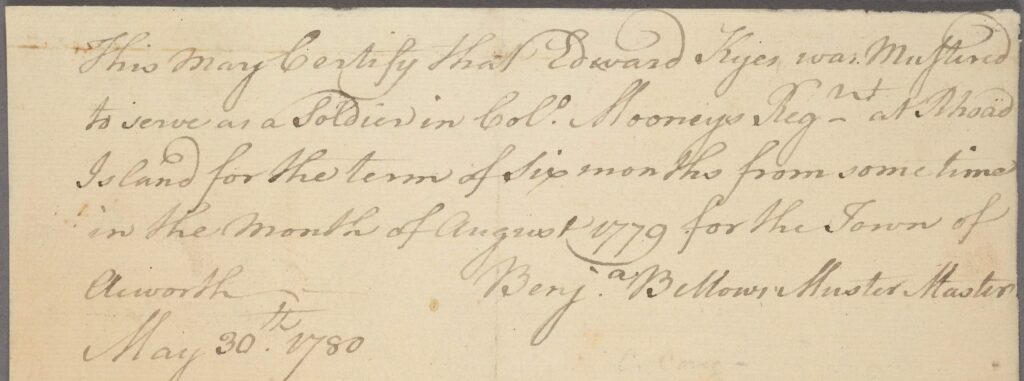 This may Certify that Edward Kyes was Mustered
to serve as a Soldier in Col.o Mooneys Reg-nt at Rhoad
Island for the term of six months from some time
in the month of August 1779 for the Town of
Acworth Benj.a Bellows Muster Master
May 30th. 1780